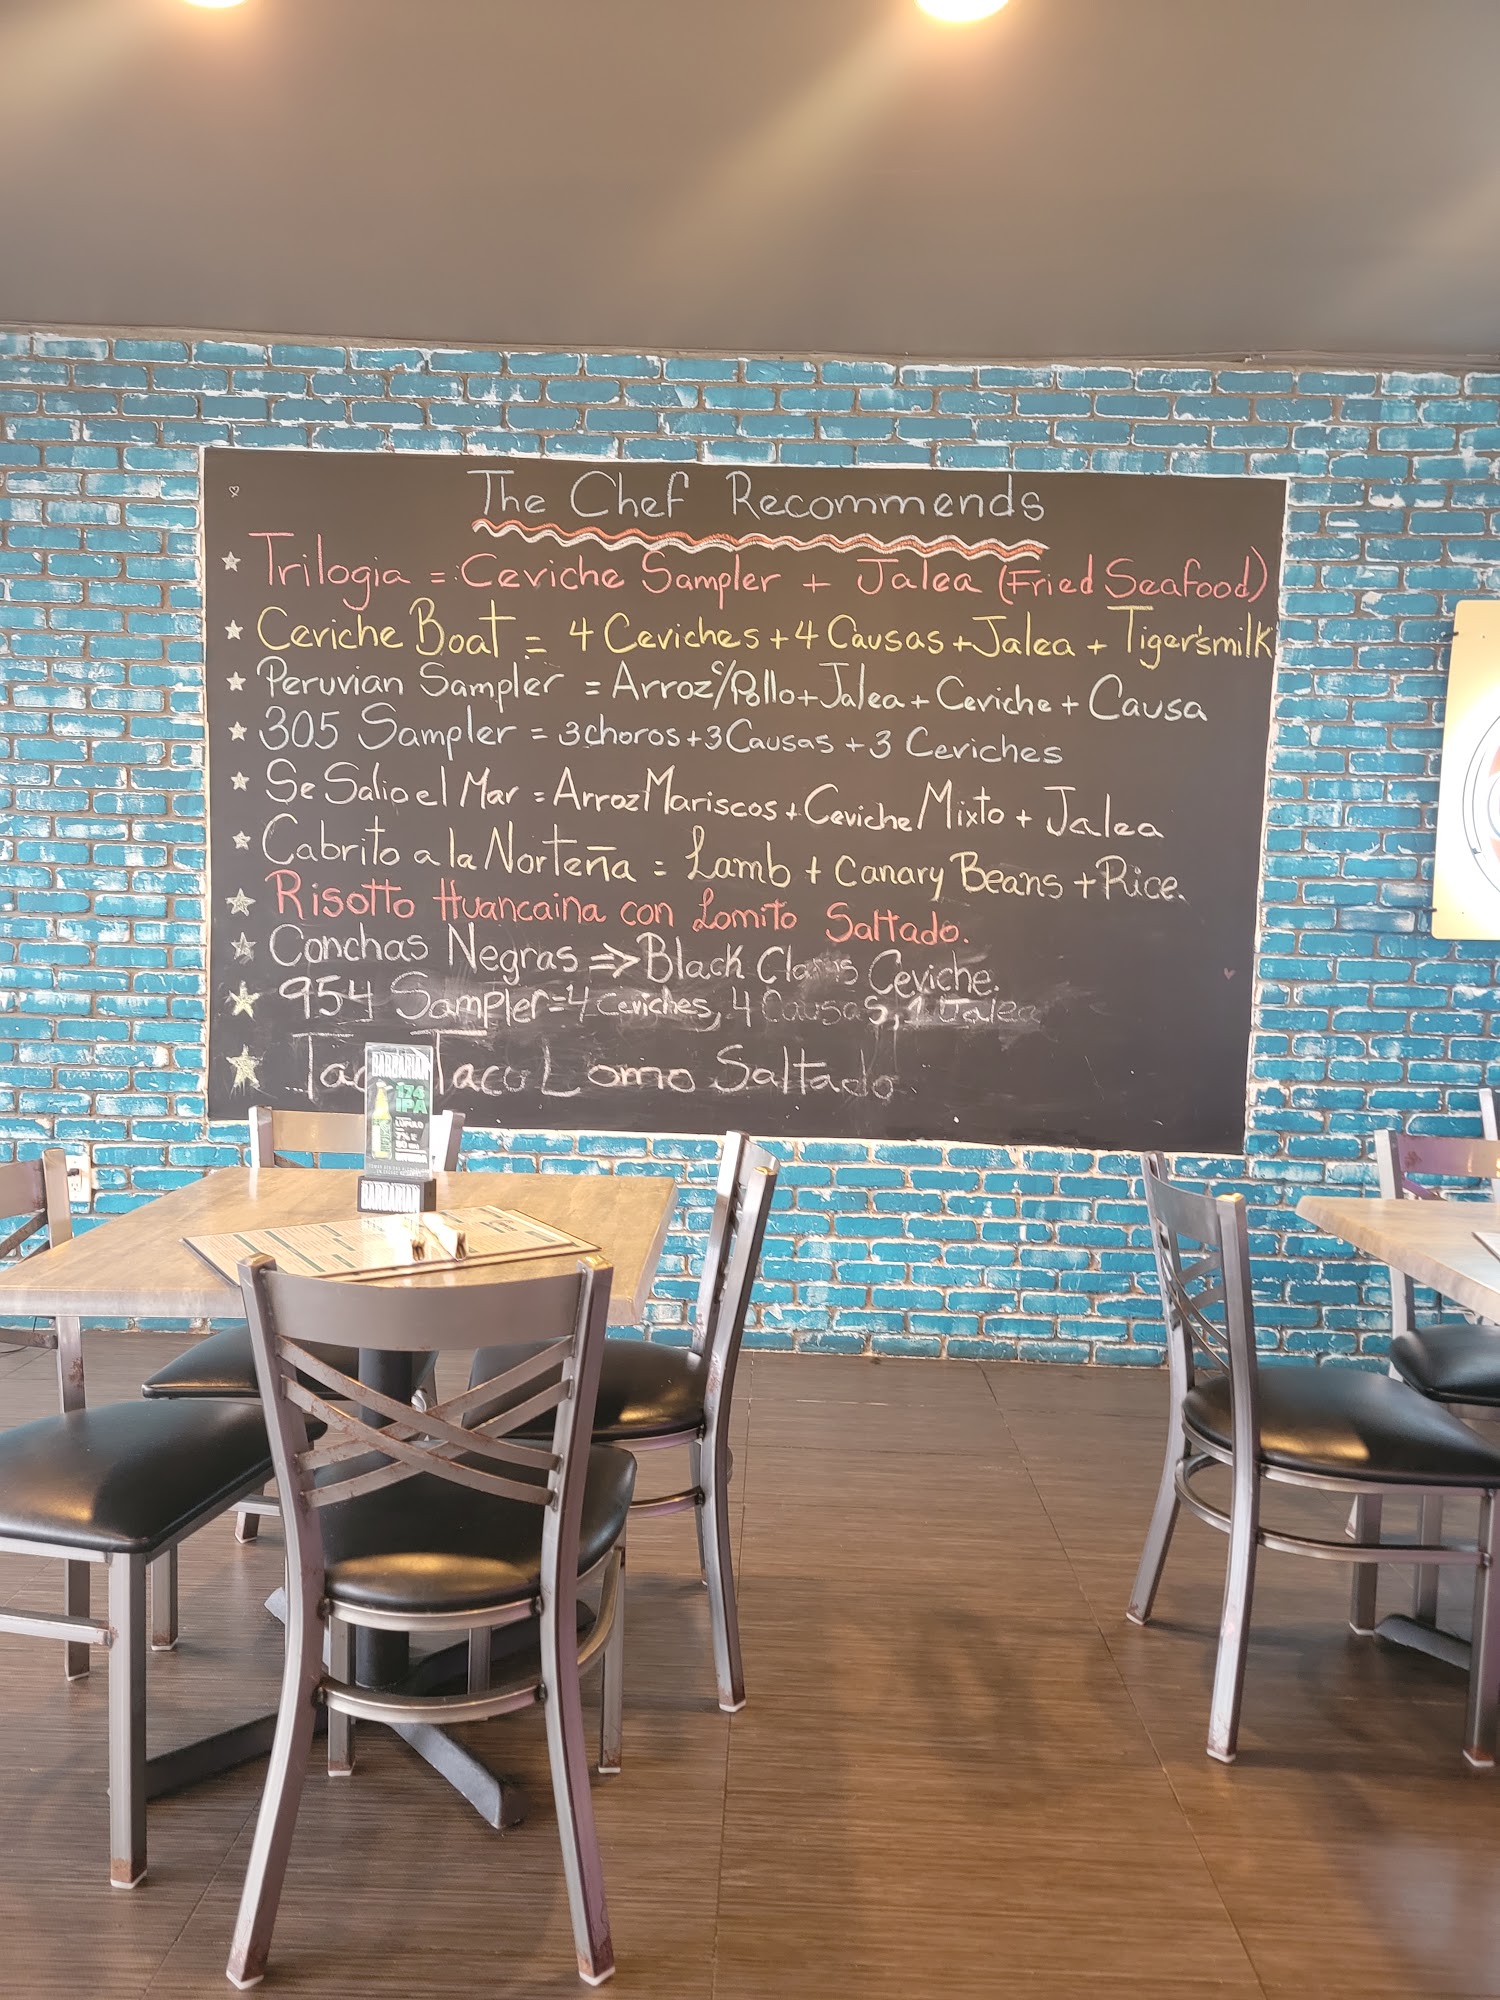 The Chef Recommends
Trilogia = Ceviche Sampler + Jalea (Fried Seafood)
Ceviche Boat = 4 Ceviches + 4 Causas + Jalea + Tiger'smilk
Peruvian Sampler = Arroz c/Pollo + Jalea + Ceviche + Causa
305 Sampler = 3 choros + 3 Causas + 3 Ceviches
Se Salio el Mar = Arroz Mariscos + Ceviche Mixto + Jalea
Cabrito a la Norteña = Lamb + Canary Beans + Rice.
Risotto Huancaina con Lomito Saltado.
Conchas Negras => Black Clams Ceviche.
954 Sampler = 4 ceviches, 4 Causas, 1 Jalea
Taco Lomo Saltado
BARBARIAN
174
IPA
LUPULO
BARBARIAN